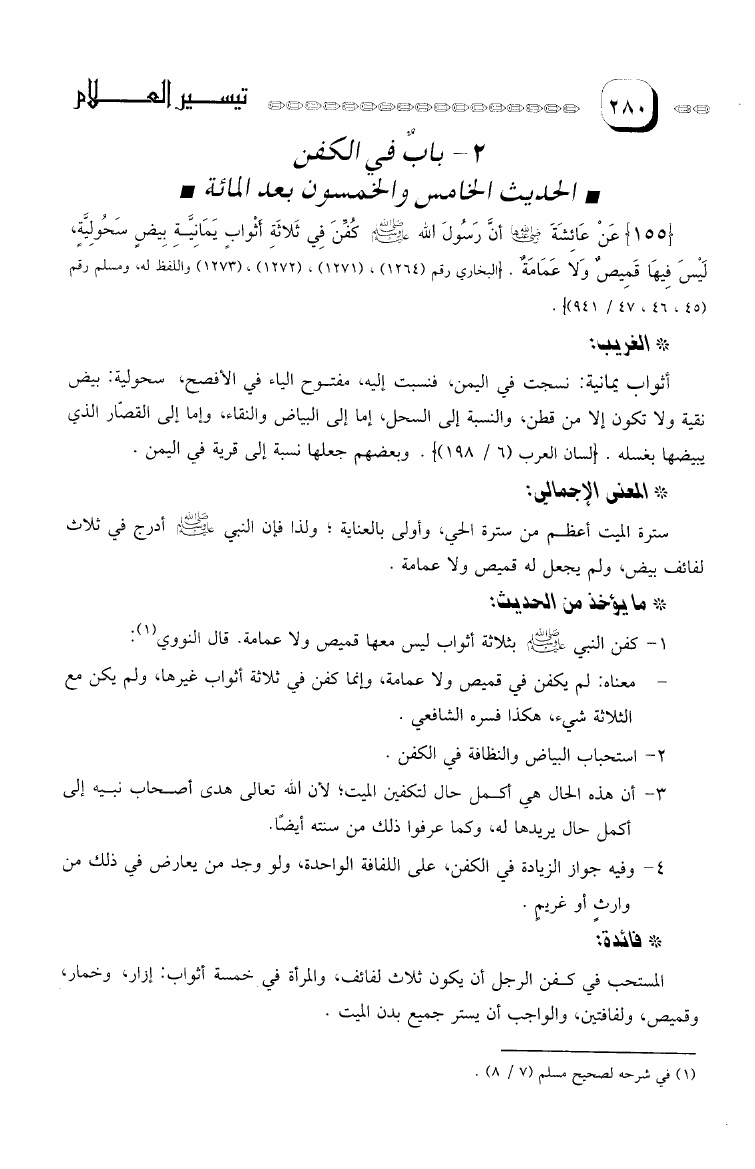 ٢٨٠ تيسير العلام
٢ - بابٌ في الكفن
■ الحديث الخامس والخمسون بعد المائة ■
{١٥٥} عَنْ عَائشَةَ رضي الله عنها أنَّ رَسُولَ الله ﷺ كُفِّنَ فِي ثَلاَثَةِ أثْوابٍ يَمَانِيَّـةِ بِيضٍ سَحُولِيَّةٍ،
لَيْسَ فِيهَا قَمِيصٌ وَلاَ عَمَامَةٌ . {البخاري رقم (١٢٦٤) ، (١٢٧١) ، (١٢٧٢) ، (١٢٧٣) واللفظ له، ومسلم رقم
(٤٥ ، ٤٦ ، ٤٧ / ٩٤١)} .
* الغريب:
أثواب يمانية: نسجت في اليمن، فنسبت إليه، مفتـوح الياء في الأفصح، سحولية: بيض
نقية ولا تكون إلا من قطن، والنسبة إلى السحل، إما إلى البياض والنقاء، وإما إلى القصّار الذي
يبيضها بغسله . {لسان العرب (٦ / ١٩٨)} . وبعضهم جعلها نسبة إلى قرية في اليمن .
* المعنى الإجمالي:
سترة الميت أعظـم من سترة الحي، وأولى بالعناية ؛ ولذا فإن النبي ﷺ أدرج في ثلاث
لفائف بيض، ولم يجعل له قميص ولا عمامة .
* ما يؤخذ من الحديث:
١- كفن النبي ﷺ بثلاثة أثواب ليس معها قميص ولا عمامة. قال النووي(١):
- معناه: لم يكفن في قميص ولا عمامة، وإنما كفن في ثلاثة أثواب غيرها، ولم يكن مع
الثلاثة شيء، هكذا فسره الشافعي .
٢- استحباب البياض والنظافة في الكفن .
٣- أن هذه الحال هي أكـمل حال لتكفين الميت؛ لأن الله تعالى هدى أصـحاب نبـيه إلى
أكمل حال يريدها له، وكما عرفوا ذلك من سنته أيضًا.
٤- وفيه جواز الزيادة في الكفن، على اللفافة الواحدة، ولو وجد من يعارض في ذلك من
وارثٍ أو غريمٍ .
* فائدة:
المستحب في كـفن الرجل أن يكون ثلاث لفائف، والمرأة في خمسة أثواب: إزار، وخمار،
وقميص، ولفافتين، والواجب أن يستر جميع بدن الميت .
(١) في شرحه لصحيح مسلم (٧ / ٨) .